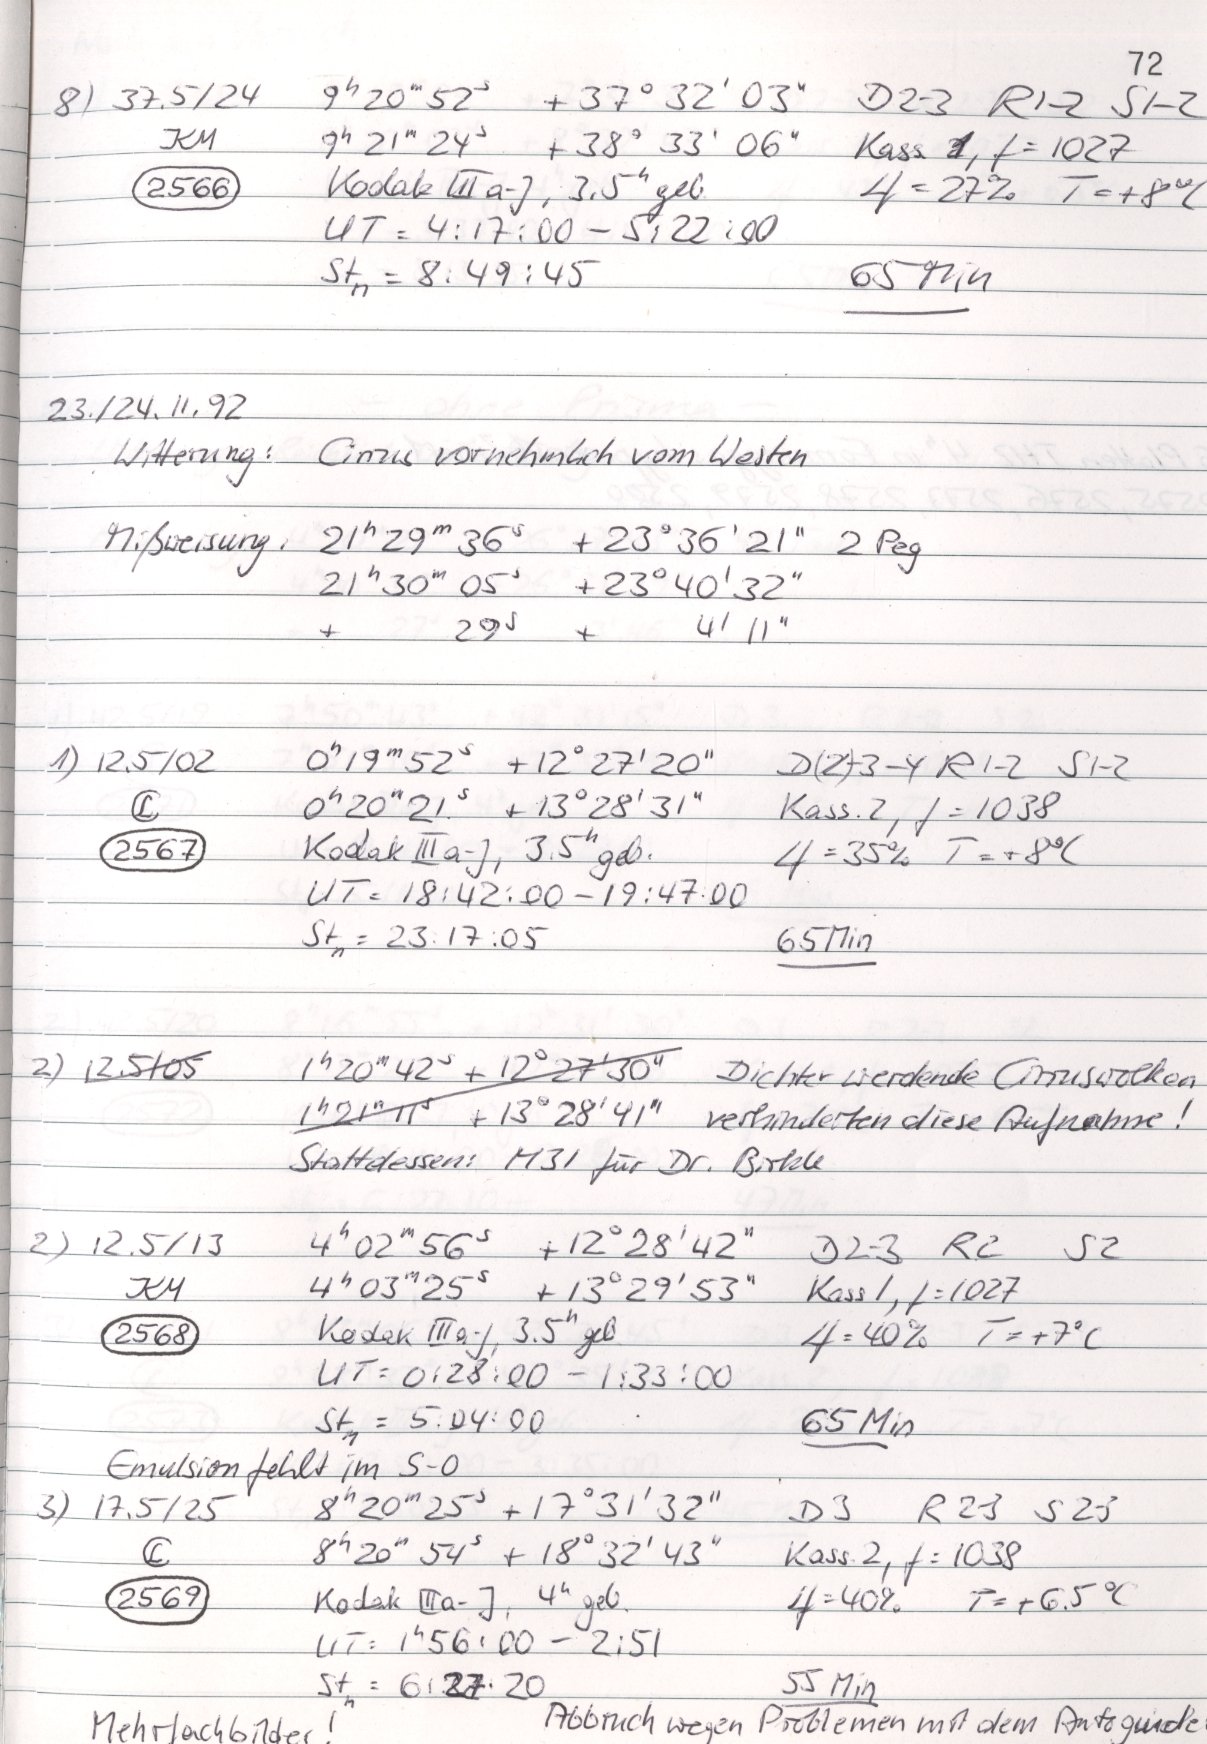 72
8) 37.5/24 9ʰ20ᵐ52ˢ +37°32'03" D2-3 R1-2 S1-2
KM 9ʰ21ᵐ24ˢ +38°33'06" Kass 1, f=1027
2566 Kodak IIIa-J, 3.5ʰ geb. φ=27% T=+8°C
UT = 4:17:00 – 5:22:00
Stₙ = 8:49:45 65 Min
23./24.11.92
Witterung: Cirrus vornehmlich vom Westen
Mißweisung: 21ʰ29ᵐ36ˢ +23°36'21" 2 Peg
21ʰ30ᵐ05ˢ +23°40'32"
+ 29ˢ + 4'11"
1) 12.5/02 0ʰ19ᵐ52ˢ +12°27'20" D(2)-3-4 R1-2 S1-2
C 0ʰ20ᵐ21ˢ +13°28'31" Kass. 2, f=1038
2567 Kodak IIIa-J, 3.5ʰ geb. φ=35% T=+8°C
UT = 18:42:00 – 19:47:00
Stₙ = 23:17:05 65 Min
2) 12.5/05 1ʰ20ᵐ42ˢ +12°27'30" Dichter werdende Cirruswolken
1ʰ21ᵐ11ˢ +13°28'41" verhinderten diese Aufnahme!
Stattdessen: M31 für Dr. Birkle
2) 12.5/13 4ʰ02ᵐ56ˢ +12°28'42" D2-3 R2 S2
KM 4ʰ03ᵐ25ˢ +13°29'53" Kass 1, f=1027
2568 Kodak IIIa-J, 3.5ʰ geb φ=40% T=+7°C
UT = 0:28:00 – 1:33:00
Stₙ = 5:04:00 65 Min
Emulsion fehlt im S-O
3) 17.5/25 8ʰ20ᵐ25ˢ +17°31'32" D3 R2-3 S2-3
C 8ʰ20ᵐ54ˢ +18°32'43" Kass. 2, f=1038
2569 Kodak IIIa-J, 4ʰ geb. φ=40% T=+6.5°C
UT = 1ʰ56:00 – 2:51
Stₙ = 6:27:20 55 Min
Mehrfachbilder! Abbruch wegen Problemen mit dem Autoguider